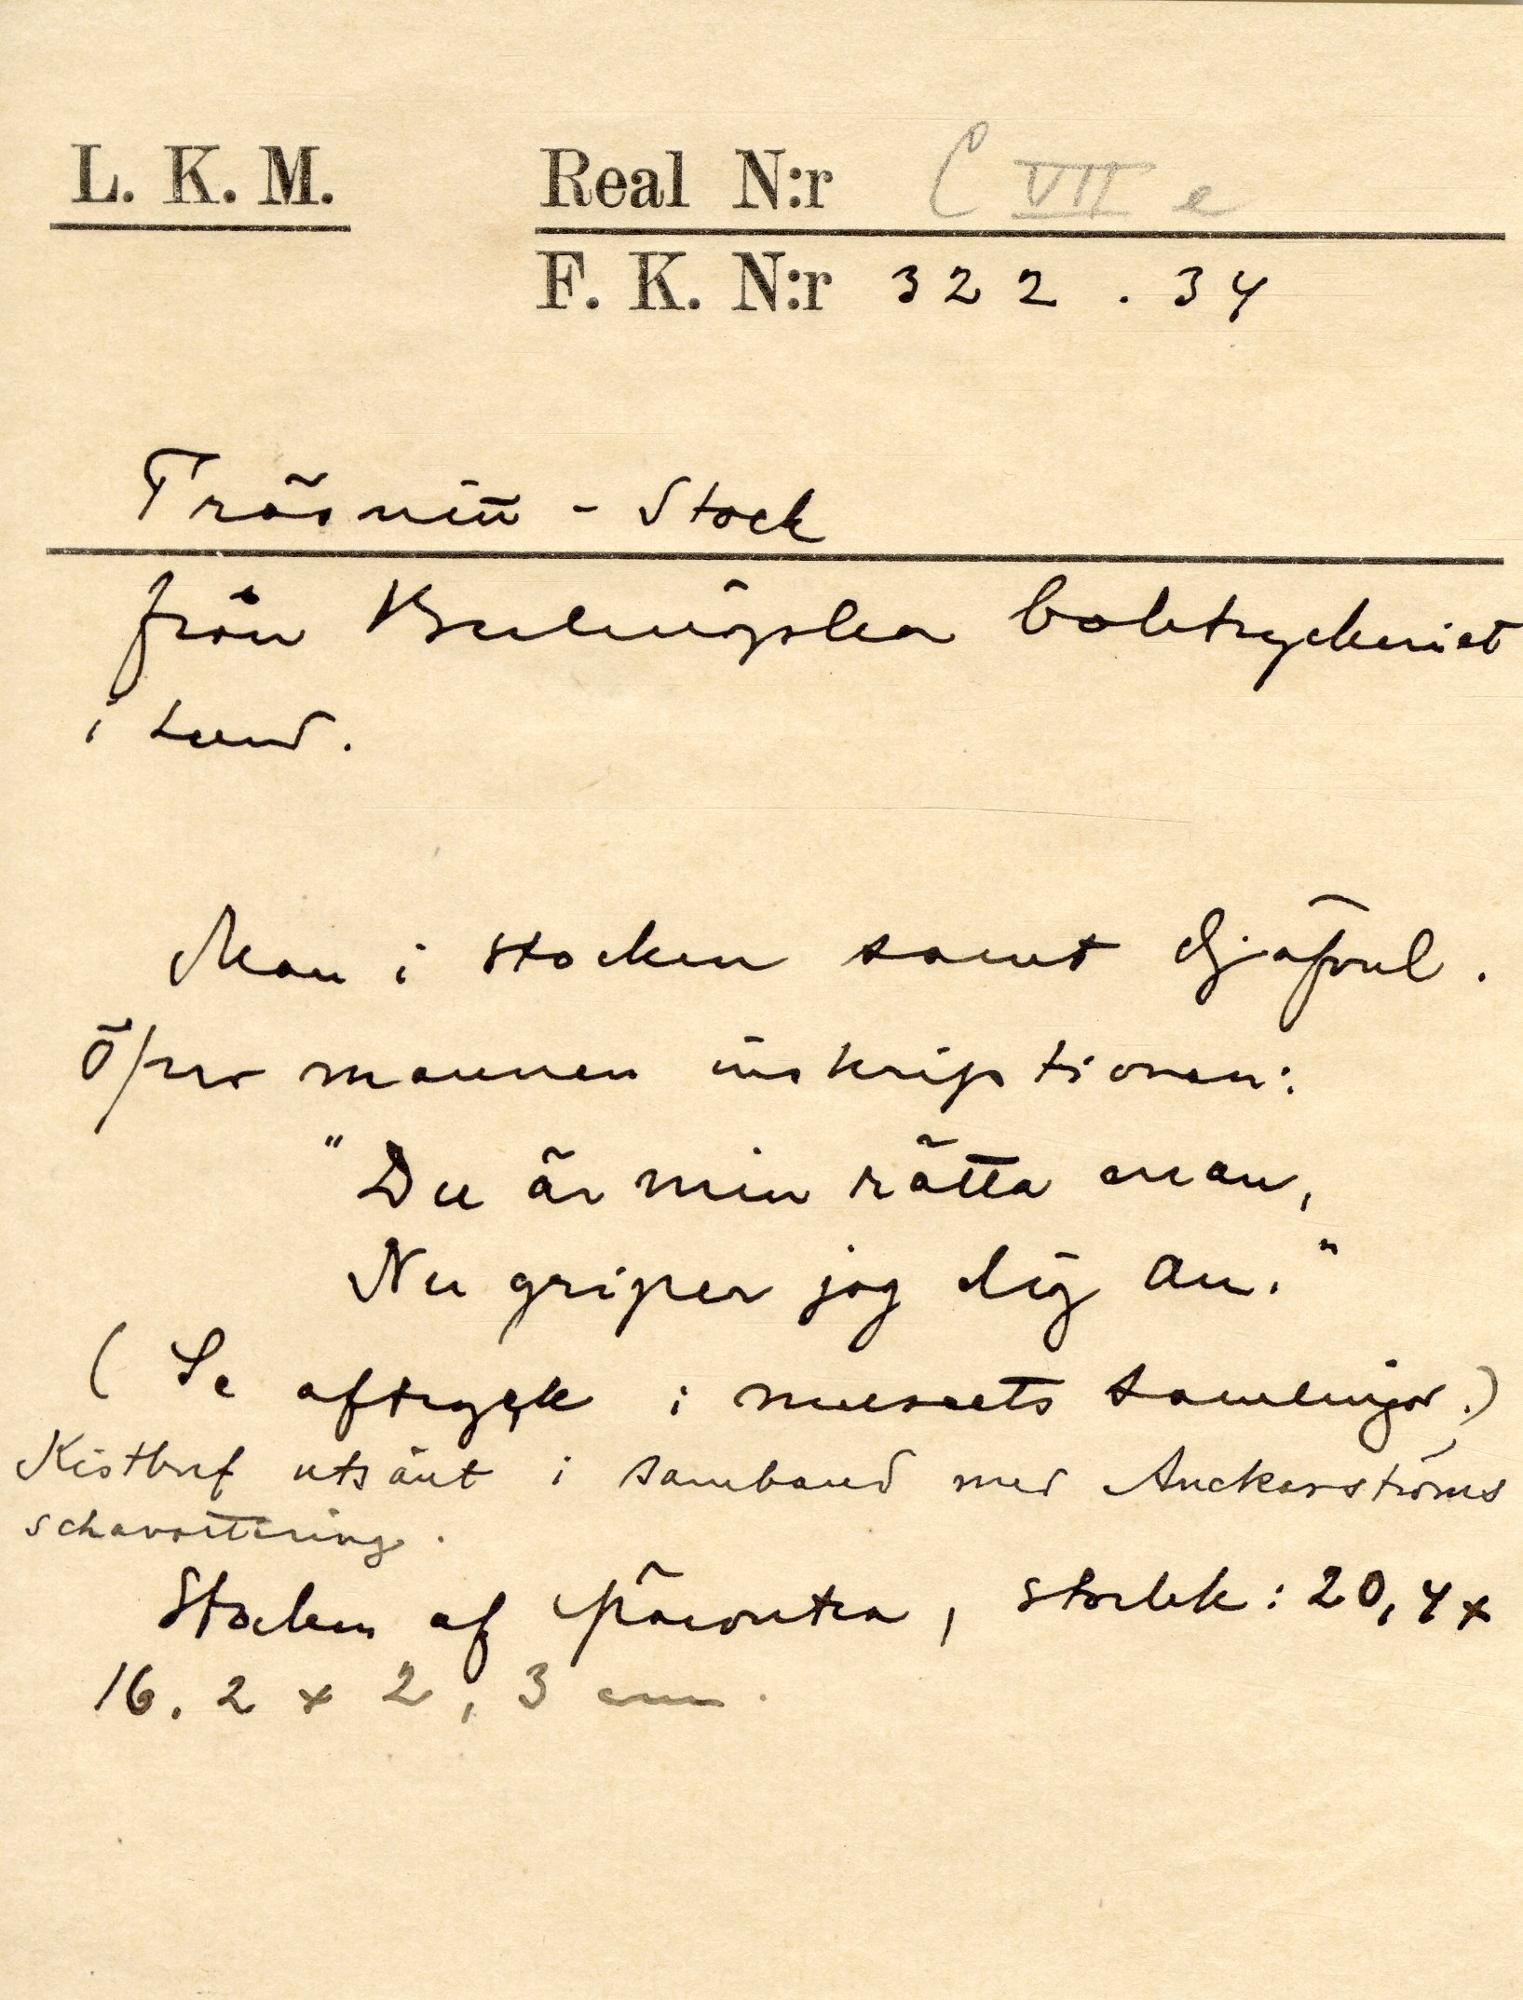 L. K. M.
Real N:r C VII e
F. K. N:r 322.34
Träsnitt - Stock
från Berlingska boktryckeriet
i Lund.
Man i stocken samt djäfvul.
Öfver mannen inskriptionen:
"Du är min rätta man,
Nu griper jag dig an."
(Se aftryck i museets samlingar.)
Kistbref utsänt i samband med Anckarströms
schavottering.
Stocken af päronträ, storlek: 20,4 x
16.2 x 2,3 cm.